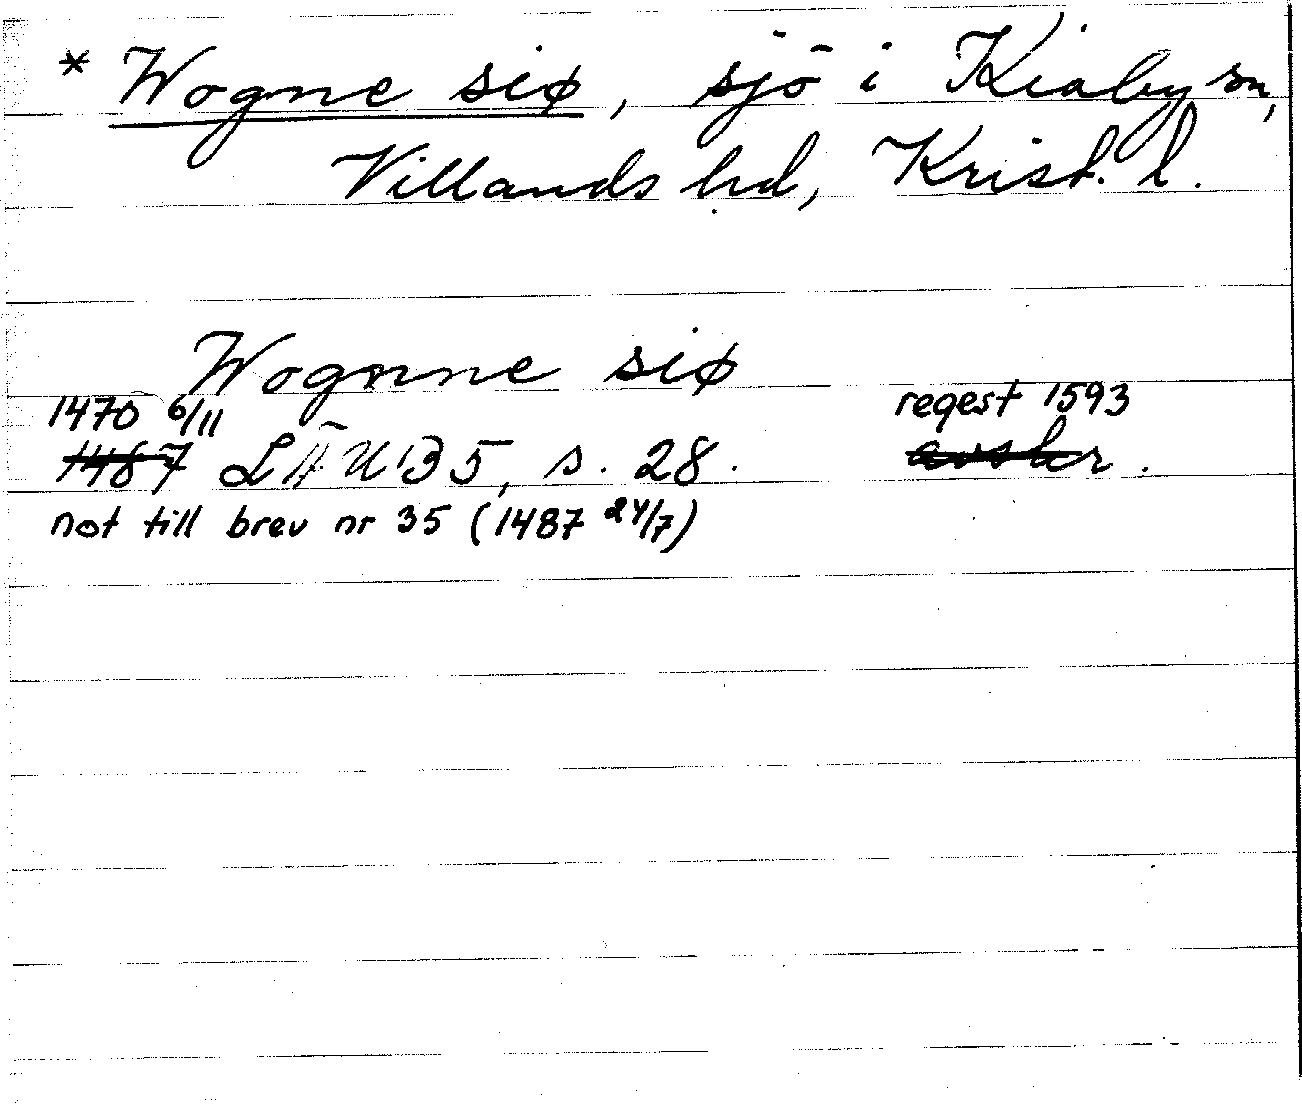 * Wogne siø, sjö i Kiaby sn,
Villands hd, Krist. l.
Wognne siø
1470 6/11 regest 1593
1487 LÄUB 5, s. 28. avskr.
not till brev nr 35 (1487 24/7)